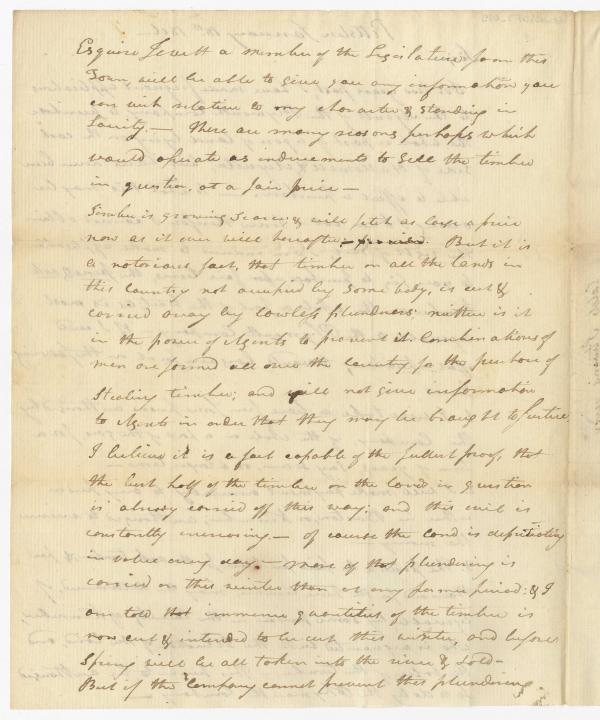 Esquire Jewett a member of the Legislature from this
Town, will be able to give you any information you
can wish relative to my character & standing in
Society. — There are many reasons perhaps which
would operate as inducements to sell the timber
in question, at a fair price —
Timber is growing scarce; & will fetch as large a price
now as it ever will hereafter. But it is
a notorious fact, that timber on all the lands in
this country not occupied by some body, is cut &
carried away by lawless plunderers; neither is it
in the power of Agents to prevent it. Combinations of
men are formed all over the country for the purpose of
stealing timber; and will not give information
to Agents in order that they may be brought to justice.
I believe it is a fact capable of the fullest proof, that
the best half of the timber on the land in question
is already carried off this way; and this evil is
constantly increasing — of course the land is depreciating
in value every day. — more of that plundering is
carried on this winter than at any former period: & I
am told that immense quantities of the timber is
now cut & intended to be cut this winter, and before
Spring will be all taken into the river & sold —
But if the Company cannot prevent this plundering